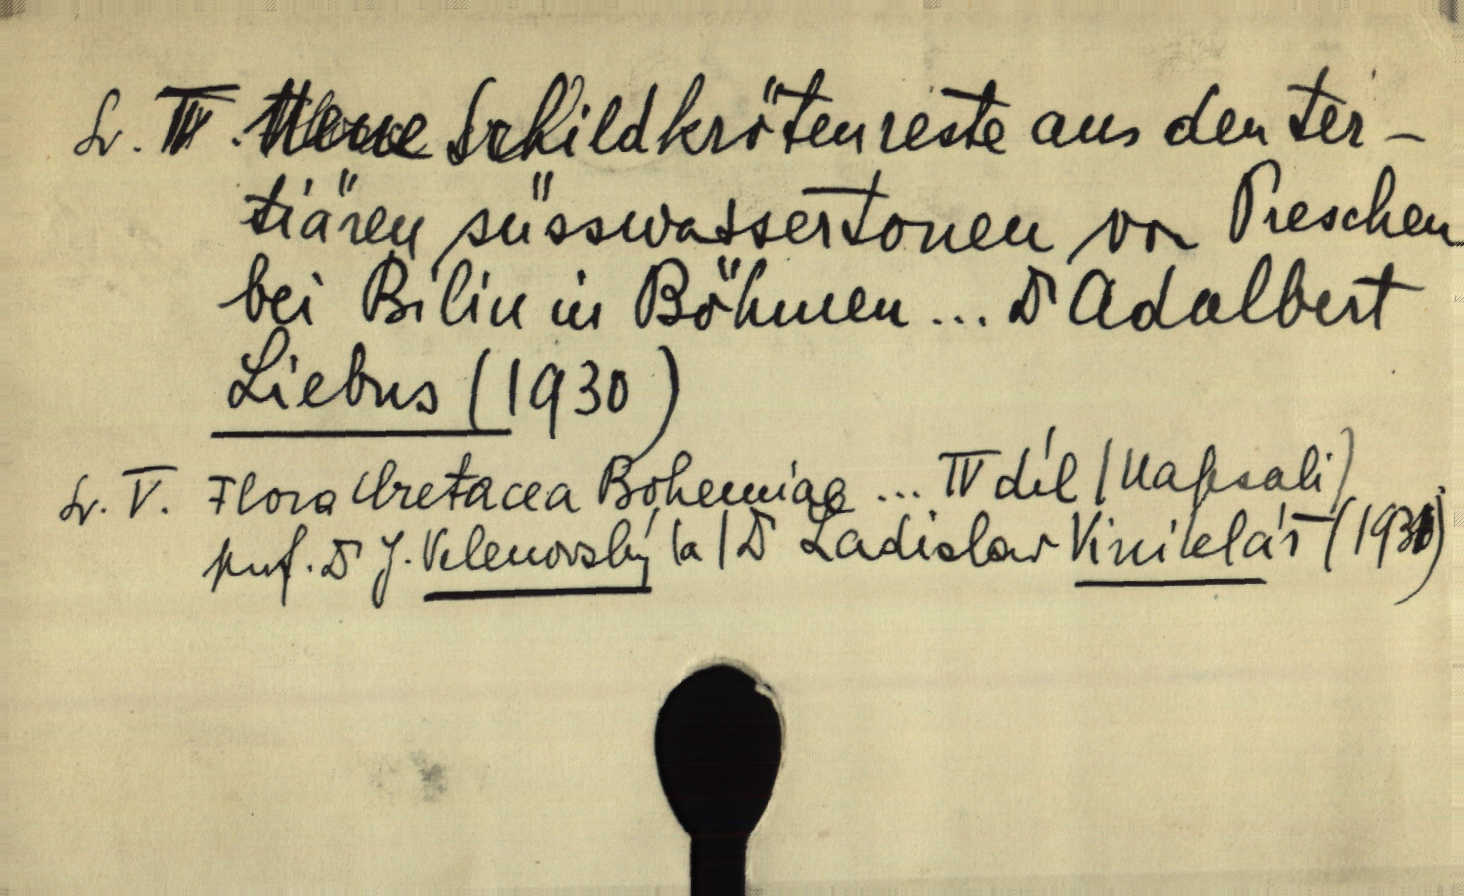 Sv. IV. Neue Schildkrötenreste aus den ter-
tiären süsswassertonen von Preschen
bei Bilin in Böhmen ... Dr Adalbert
Liebus (1930)
Sv. V. Flora Cretacea Bohemiae ... IV díl / Napsali /
prof. Dr J. Velenovský a / Dr Ladislav Viniklář (1931)